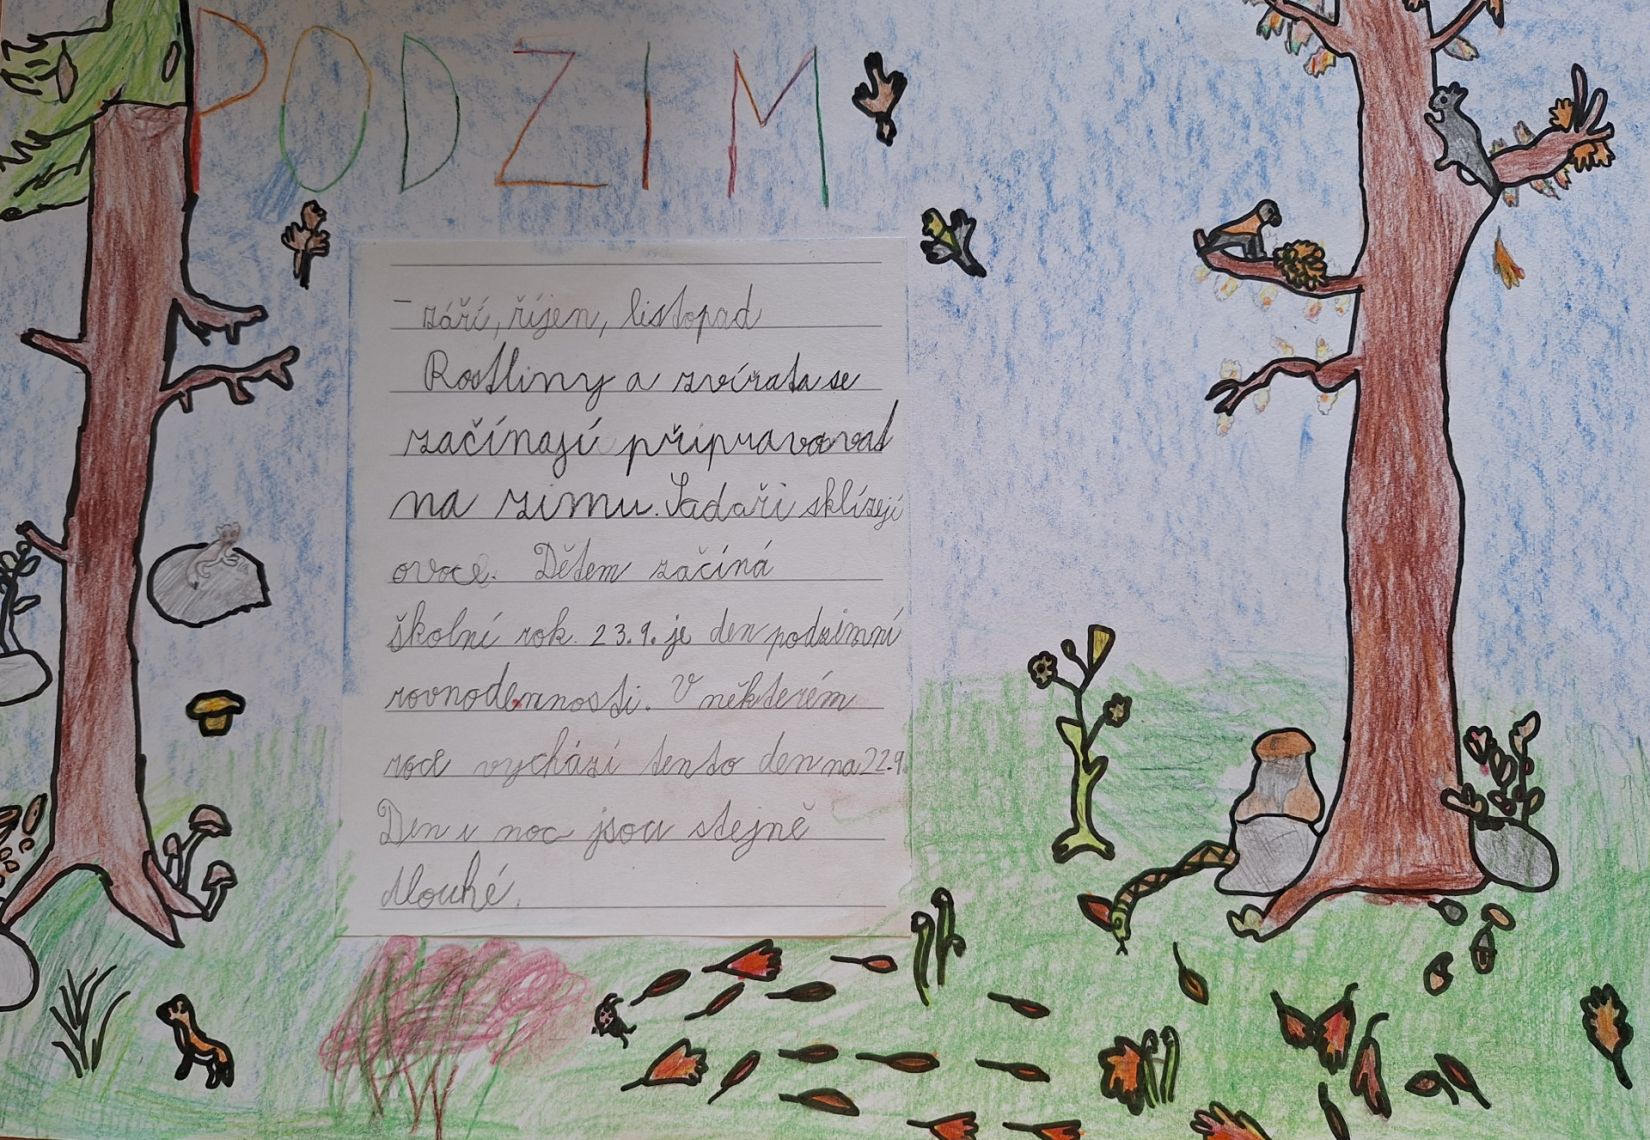 PODZIM
- září, říjen, listopad
Rostliny a zvířata se
začínají připravovat
na zimu. Sadaři sklízejí
ovoce. Dětem začíná
školní rok. 23.9. je den podzimní
rovnodennosti. V některém
roce vychází tento den na 22.9.
Den i noc jsou stejně
dlouhé.